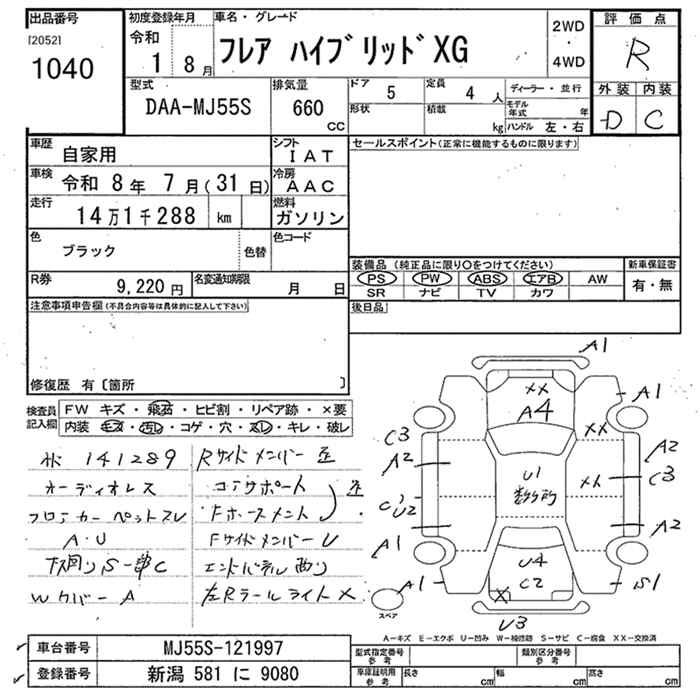 出品番号
[2052]
1040
初度登録年月
令和
1 8月
車名・グレード
フレア ハイブリッドXG
2WD
・
4WD
評価点
R
外装 内装
D C
型式
DAA-MJ55S
排気量
660
cc
ドア 5
定員 4 人
形状
積載 kg
ディーラー・並行
モデル年式 年
ハンドル 左・右
車歴 自家用
シフト IAT
車検 令和 8年 7月(31日)
冷房 AAC
走行 14万1千288 km
燃料 ガソリン
色 ブラック
色替
色コード
R券 9,220円
名変通知期限 月 日
セールスポイント(正常に機能するものに限ります)
装備品 (純正品に限り○をつけてください)
新車保証書
PS PW ABS エアB AW
有・無
SR ナビ TV カワ
後日品
注意事項申告欄(不具合内容等は具体的に記入して下さい)
修復歴 有〔箇所 〕
検査員記入欄
FW キズ・飛石・ヒビ割・リペア跡・×要
内装・キズ・汚レ・コゲ・穴・スレ・キレ・破レ
141289
オーディオレス
フロアカーペットスレ
A・U
下廻りS一部C
WカバーA
Rサイドメンバー歪
コアサポート
Fホースメント
歪
FサイドメンバーU
エンドパネル曲り
左Rテールライト×
A1
XX
A4
A1
C3
A2
XX
A2
C3
U1
多数箇所
XX
C1
U2
A2
A1
A1
U4
C2
X
S1
U3
スペア
A-キズ E-エクボ U-凹み W-補修跡 S-サビ C-腐食 XX-交換済
車台番号 MJ55S-121997
登録番号 新潟 581 に 9080
型式指定番号
参考
類別区分番号
参考
車庫証明用
参考
長さ cm
幅 cm
高さ cm